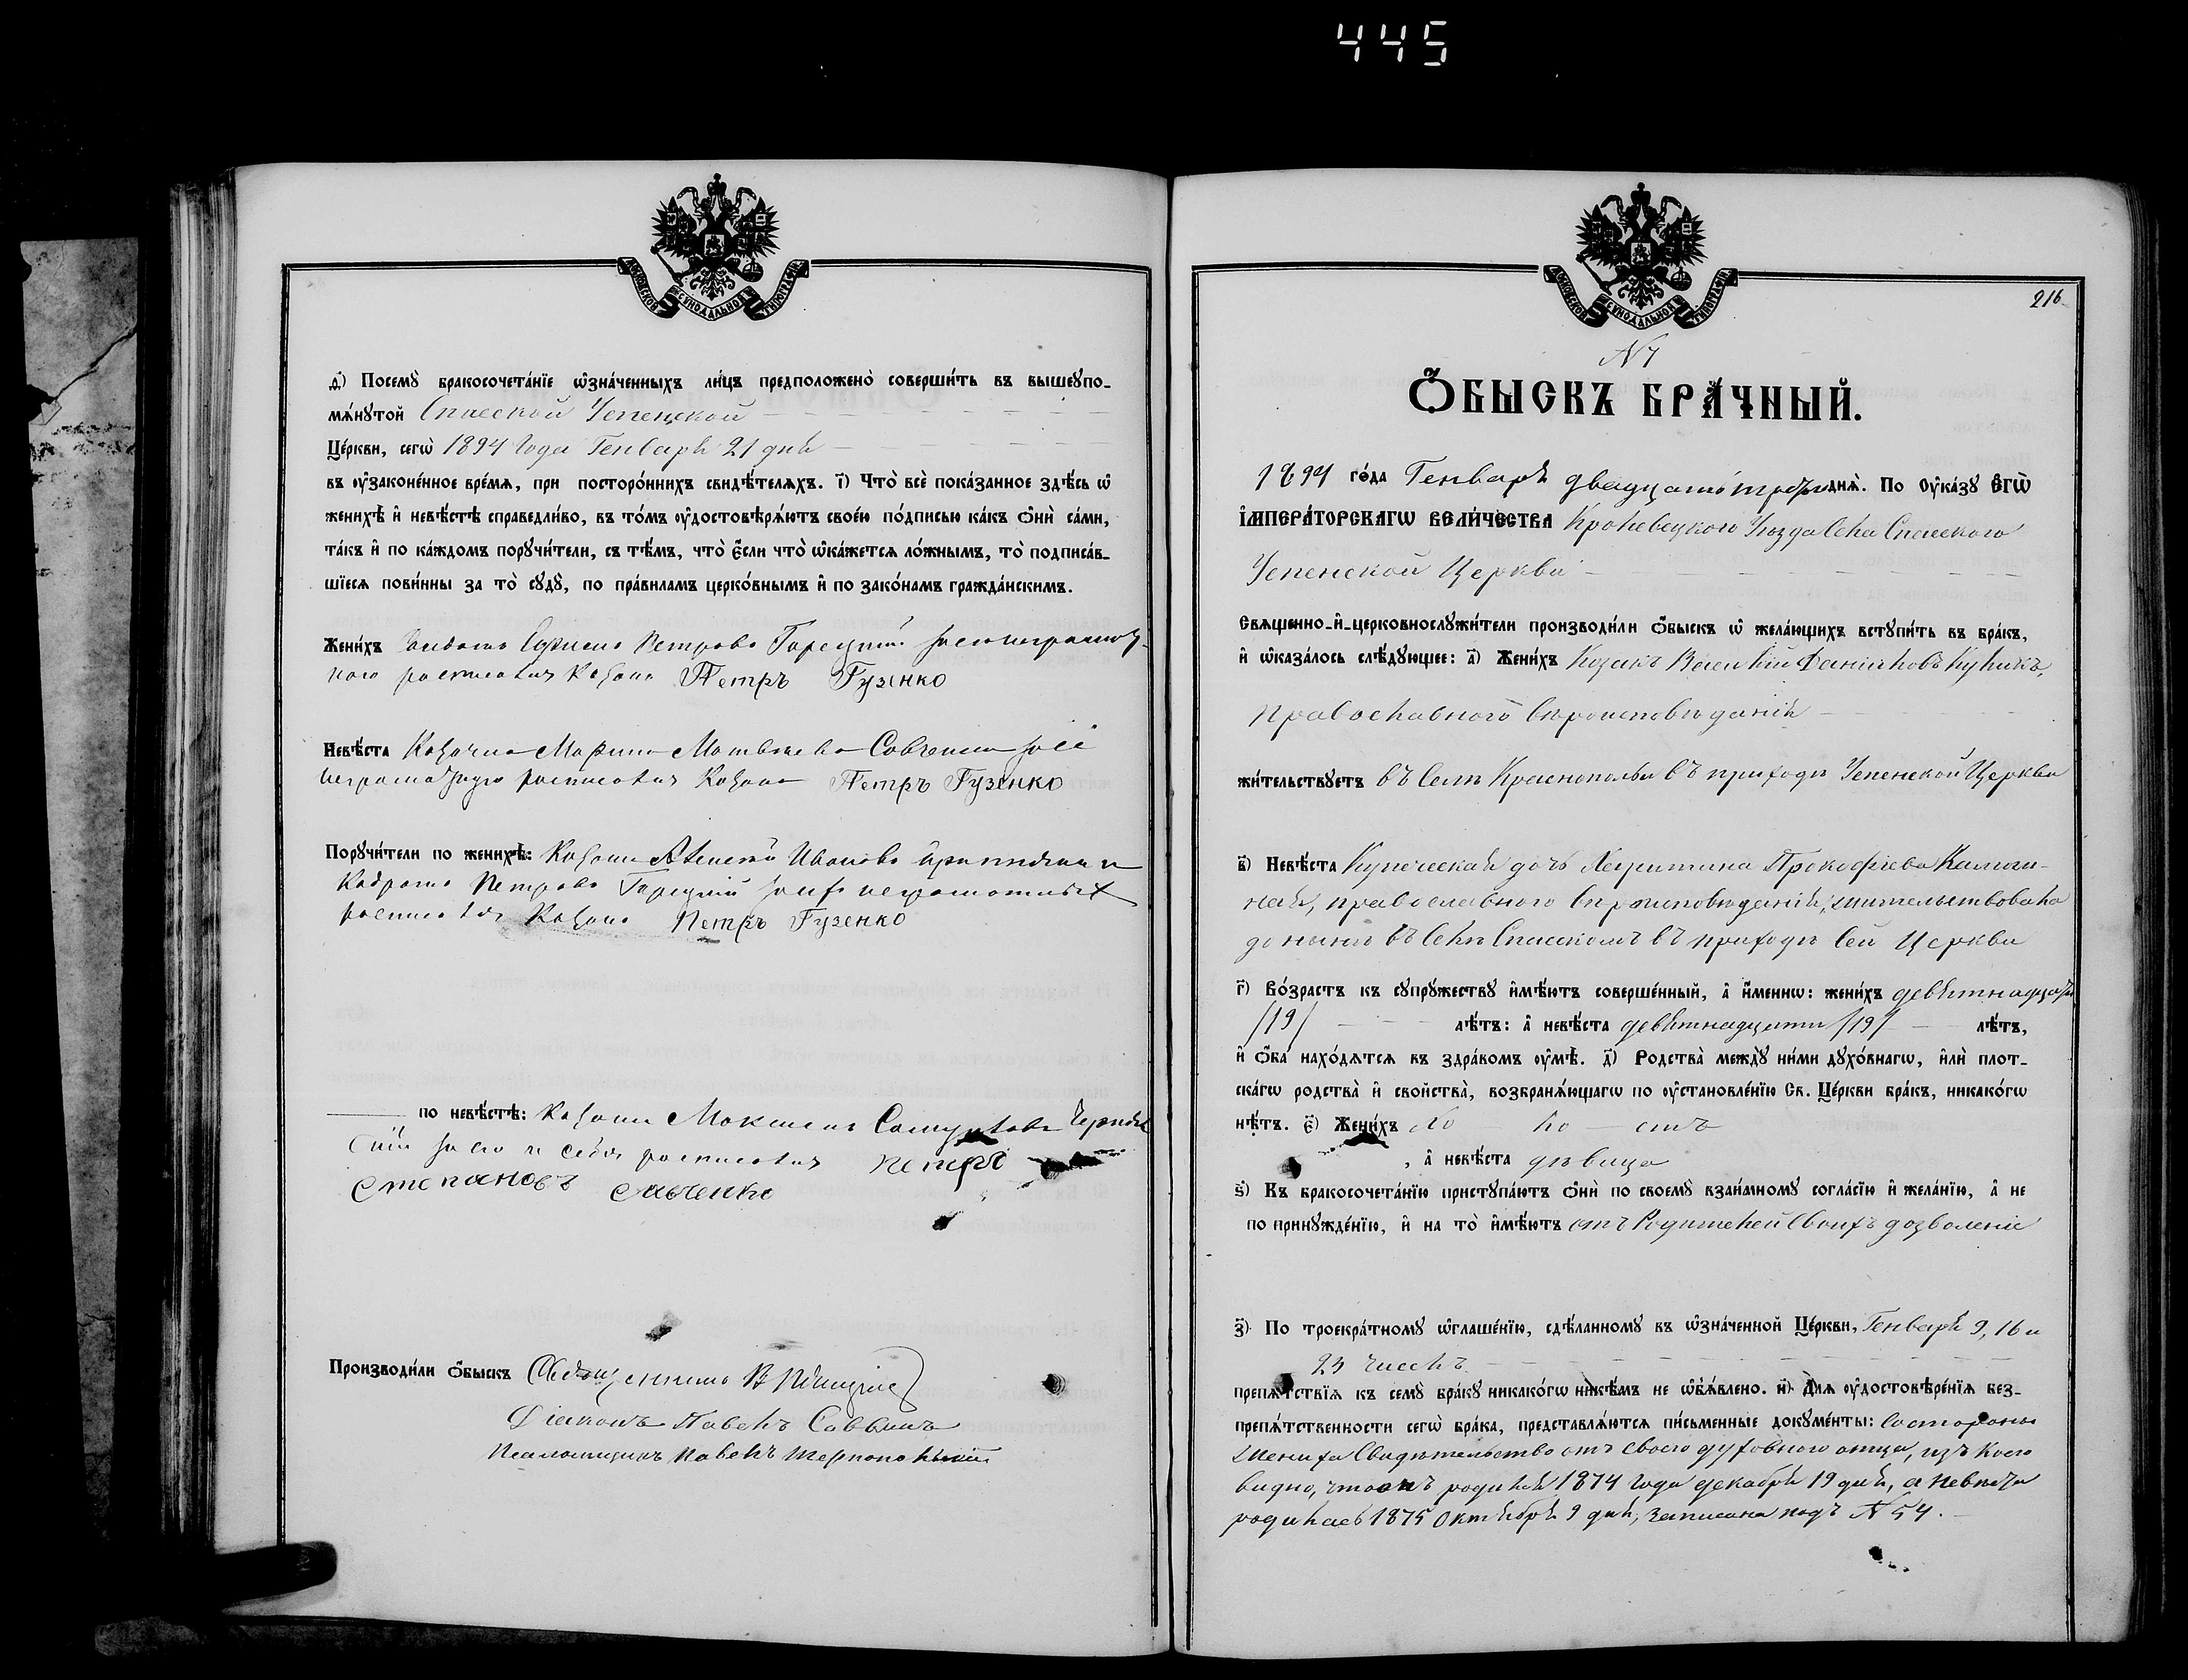 445
МОСКОВСКОЙ СѴНОДАЛЬНОЙ ТИПОГРАФІИ
д҃) Посемꙋ̀ бракосочета́нїе ѡ҆зна́ченныхъ ли́цъ предположено̀ соверши́ть въ вышеꙋпо-
мѧ́нꙋтой Спасской Успенской
Це́ркви, сегѡ̀ 1894 года Генваря 21 дня
въ ᲂу҆законе́нное вре́мѧ, при посторо́ннихъ свидѣ́телѧхъ. і҃) Что̀ всѐ пока́занное здѣ́сь ѡ҆
женихѣ̀ и҆ невѣ́стѣ справедли́во, въ то́мъ ᲂу҆достовѣрѧ́ютъ свое́ю по́дписью ка́къ ѻ҆нѝ са́ми,
та́къ и҆ по ка́ждомъ порꙋчи́тели, съ тѣ́мъ, что̀ є҆́сли что̀ ѡ҆ка́жетсѧ ло́жнымъ, то̀ подписа́в-
шїесѧ пови́нны за то̀ сꙋдꙋ̀, по пра́виламъ церко́внымъ и҆ по зако́намъ гражда́нскимъ.
Жени́хъ Петровъ Горецкій за неграмот-
ного росписался Козакъ Петръ Гузенко
Невѣ́ста Козачка Марина Матвѣева за её
неграмотную росписался Козакъ Петръ Гузенко
Порꙋчи́тели по женихѣ̀: Козаки Алексѣй Ивановъ и
Петровъ Горецкій за ихъ неграмотныхъ
росписался Козакъ Петръ Гузенко
по невѣ́стѣ: Козаки Максимъ
за его и себя росписался Петръ
Степановъ Савченко
Производи́ли ѻ҆́быскъ Священникъ В
Діаконъ Павелъ Саввинъ
Псаломщикъ Павелъ
МОСКОВСКОЙ СѴНОДАЛЬНОЙ ТИПОГРАФІИ
216
N 7
Ѻ҆́БЫСКЪ БРА́ЧНЫЙ.
1894 го́да Генваря двадцать третья днѧ̀. По ᲂу҆ка́зꙋ Є҆ГѠ̀
І҆МПЕРА́ТОРСКАГѠ ВЕЛИ́ЧЕСТВА Кролевецкого Уѣзда Села Спасского
Успенской Церкви
Свѧще́нно-и҆-церковнослꙋжи́тели производи́ли ѻ҆́быскъ ѡ҆ жела́ющихъ встꙋпи́ть въ бра́къ,
и҆ ѡ҆каза́лось слѣ́дꙋющее: а҃) Жени́хъ Козакъ Василій Даниловъ Куликъ,
православного вѣроисповѣданія
жи́тельствꙋетъ въ Селѣ Краснопольи въ приходѣ Успенской Церкви
в҃) Невѣ́ста Купеческая дочь Харитина Прокофіева
ная, православного вѣроисповѣданія, жительствовала
до нынѣ въ Селѣ Спасскомъ въ приходѣ сей Церкви
г҃) Во́зрастъ къ сꙋпрꙋ́жествꙋ и҆мѣ́ютъ соверше́нный, а҆ и҆́меннѡ: жени́хъ девятнадцать
/19/ лѣ́тъ: а҆ невѣ́ста девятнадцати /19/ лѣ́тъ,
и҆ ѻ҆́ба нахо́дѧтсѧ въ здра́вомъ ᲂу҆мѣ̀. д҃) Родства̀ междꙋ̀ ни́ми дꙋхо́внагѡ, и҆лѝ плот-
ска́гѡ родства̀ и҆ сво́йства̀, возбранѧ́ющагѡ по ᲂу҆становле́нїю Св. Це́ркви бра́къ, никако́гѡ
нѣ́тъ. є҃) Жени́хъ хо — ло — стъ
, а҆ невѣ́ста дѣвица
ѕ҃) Къ бракосочета́нїю пристꙋпа́ютъ ѻ҆нѝ по своемꙋ̀ взаи́мномꙋ согла́сїю и҆ жела́нїю, а҆ не
по принꙋжде́нїю, и҆ на то̀ и҆мѣ́ютъ отъ Родителей своихъ дозволеніе
з҃) По троекра́тномꙋ ѡ҆глаше́нїю, сдѣ́ланномꙋ въ ѡ҆зна́ченной Це́ркви, Генваря 9, 16 и
23 чиселъ
препѧ́тствїѧ къ семꙋ̀ бра́кꙋ никако́гѡ никѣ́мъ не ѡ҆б̾ѧ́влено. и҃) Длѧ̀ ᲂу҆достовѣре́нїѧ без-
препѧ́тственности сегѡ̀ бра́ка, представлѧ́ютсѧ пи́сьменные докꙋме́нты: состороны
жениха Свидѣтельство отъ своего духовного отца, изъ коего
видно, что онъ родился 1874 года декабря 19 дня, а невѣста
родилась 1875 Октября 9 дня, записана подъ N 54.